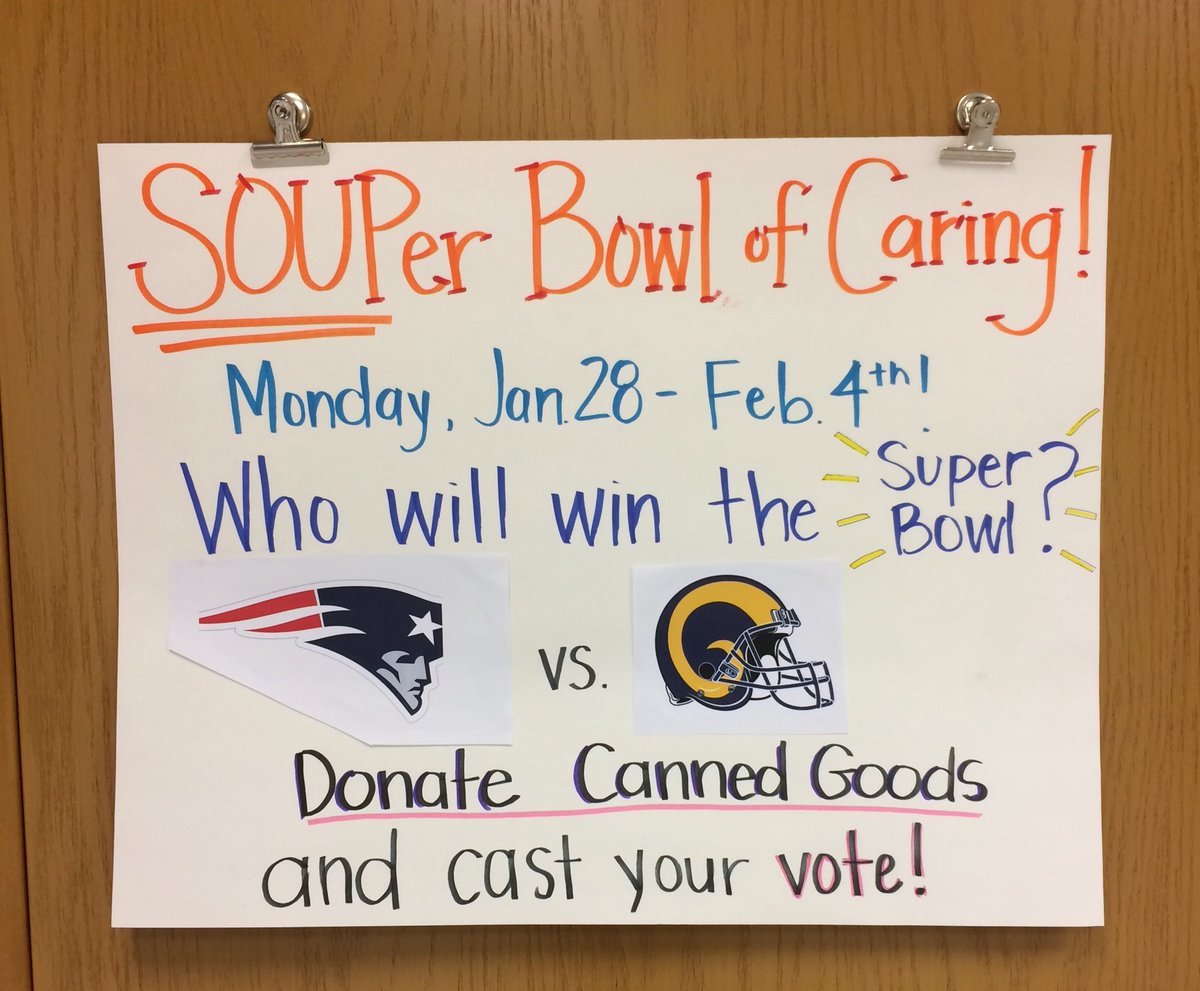 SOUPer Bowl of Caring!
Monday, Jan. 28 - Feb. 4th!
Who will win the Super Bowl?
vs.
Donate Canned Goods
and cast your vote!